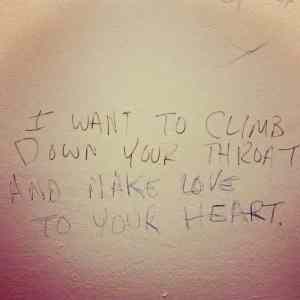 I WANT TO CLIMB
DOWN YOUR THROAT
AND MAKE LOVE
TO YOUR HEART.